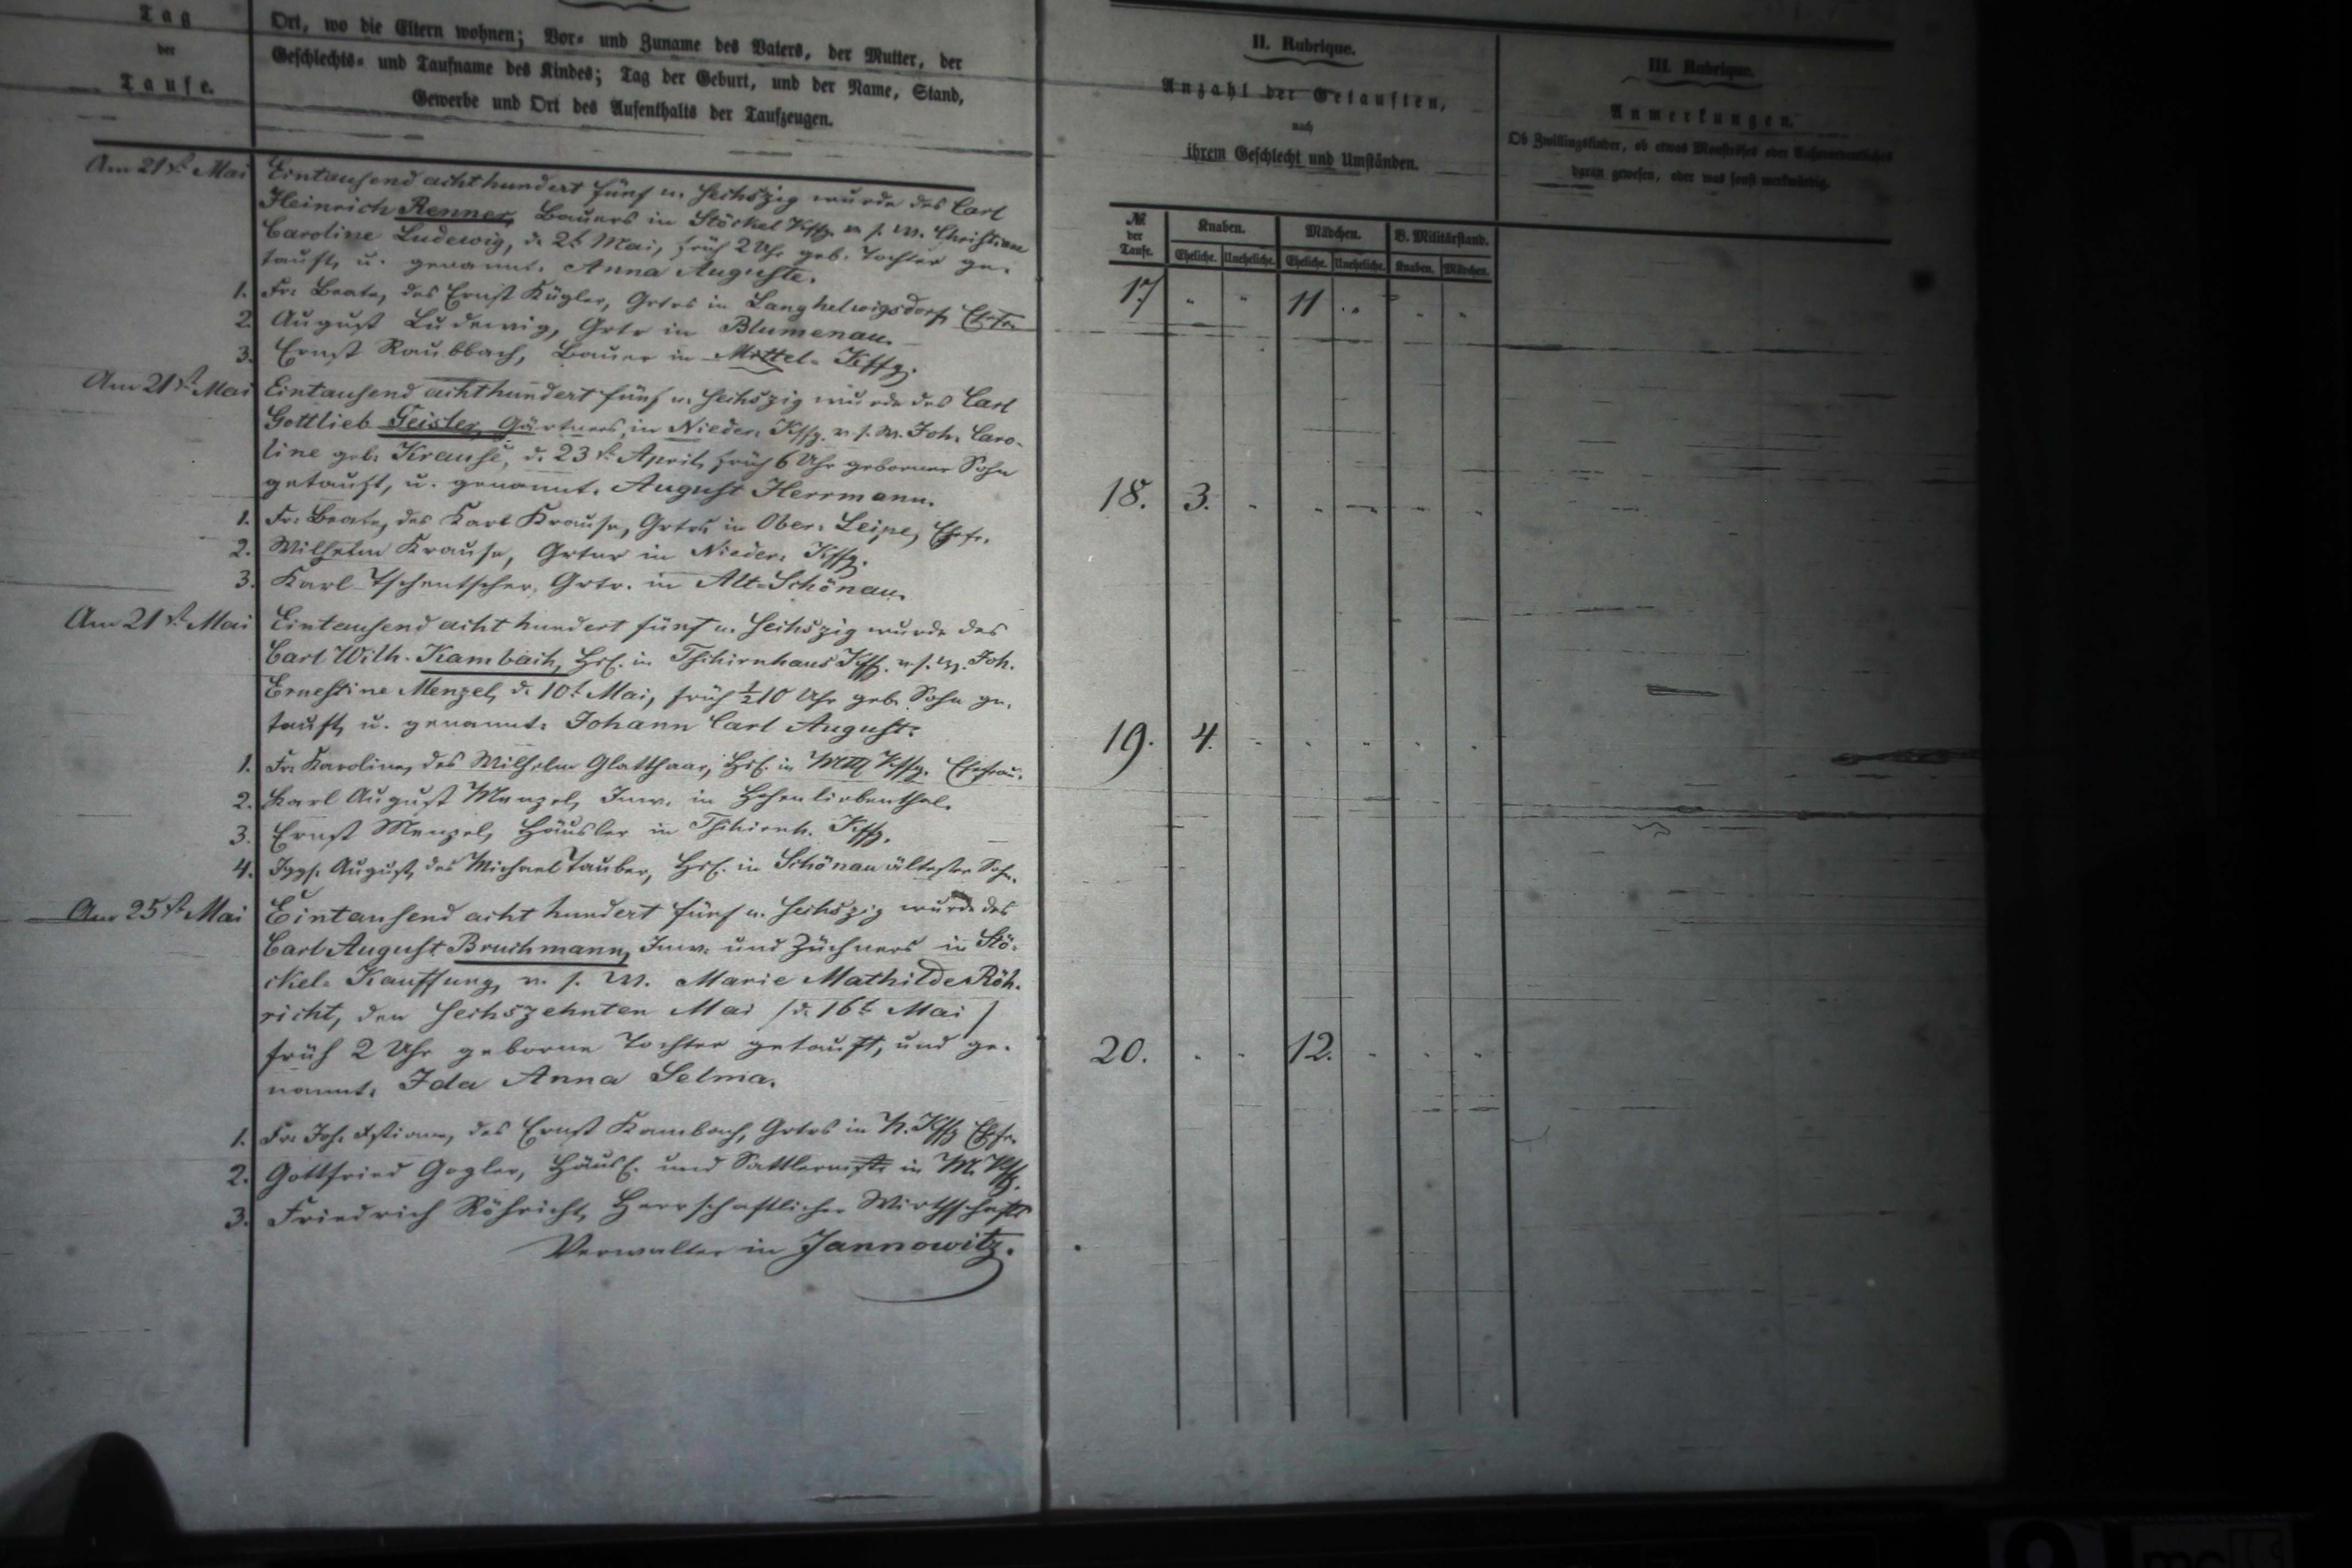 Tag
der
Taufe.
Ort, wo die Eltern wohnen; Vor- und Zuname des Vaters, der Mutter, der
Geschlechts- und Taufname des Kindes; Tag der Geburt, und der Name, Stand,
Gewerbe und Ort des Aufenthalts der Taufzeugen.
II. Rubrique.
Anzahl der Getauften,
nach
ihrem Geschlecht und Umständen.
III. Rubrique.
Anmerkungen.
Ob Zwillingskinder, ob etwas Monströses oder Außerordentliches
daran gewesen, oder was sonst merkwürdig.
№
der
Taufe.
Knaben.
Mädchen.
B. Militärstand.
Eheliche. Uneheliche. Eheliche. Uneheliche. Knaben. Mädchen.
Am 21t. Mai Eintausend achthundert fünf u. sechszig wurde des Carl
Heinrich Renner, Bauers in Stöckel Kffg. v. s. W. Christiane
Caroline Ludewig, d. 2t Mai, früh 2 Uhr geb. Tochter ge-
tauft, u. genannt: Anna Auguste.
1. Fr. Beate, des Ernst Kügler, Grtrs in Langhelwigsdorf, Ehefr.
2. August Ludewig, Grtr in Blumenau.
3. Ernst Raubbach, Bauer in Mittel-Kffg.
17. " " 11 " " "
Am 21t. Mai Eintausend achthundert fünf u. sechszig wurde des Carl
Gottlieb Geisler, Gärtners in Nieder-Kffg. v. s. W. Joh. Caro-
line geb. Krause, d. 23t. April, früh 6 Uhr geborner Sohn
getauft, u. genannt: August Herrmann.
1. Fr. Beate, des Karl Krause, Grtrs in Ober-Leipe, Ehefr.
2. Wilhelm Krause, Grtner in Nieder-Kffg.
3. Karl Tschentscher, Grtr. in Alt-Schönau.
18. 3. " " " " "
Am 21t. Mai Eintausend acht hundert fünf u. sechszig wurde des
Carl Wilh. Kambach, Hsl. in Tschirnhaus Kffg. v. s. W. Joh.
Ernestine Menzel, d. 10t Mai, früh ½10 Uhr geb. Sohn ge-
tauft, u. genannt: Johann Carl August.
1. Fr. Karoline, des Wilhelm Glatthaar, Hsl. in Kffg. Ehefrau.
2. Karl August Menzel, Inw. in Hohenliebenthal.
3. Ernst Menzel, Häusler in Tschirnh. Kffg.
4. Jggs. August, des Michael Tauber, Hsl. in Schönau ältester Sohn.
19. 4. " " " " "
Am 25t. Mai Eintausend acht hundert fünf u. sechszig wurde des
Carl August Bruchmann, Inw. und Züchners in Stö-
ckel-Kauffung, v. s. W. Marie Mathilde Röh-
richt, den sechszehnten Mai (d. 16t Mai)
früh 2 Uhr geborne Tochter getauft, und ge-
nannt: Ida Anna Selma.
1. Fr. Joh. Xstiane, des Ernst Kambach, Grtrs in N. Kffg Ehfr.
2. Gottfried Gogler, Häusl. und Sattlermstr in M. Kffg.
3. Friedrich Röhricht, Herrschaftlicher Wirthschafts
Verwalter in Jannowitz.
20. " " 12. " " "